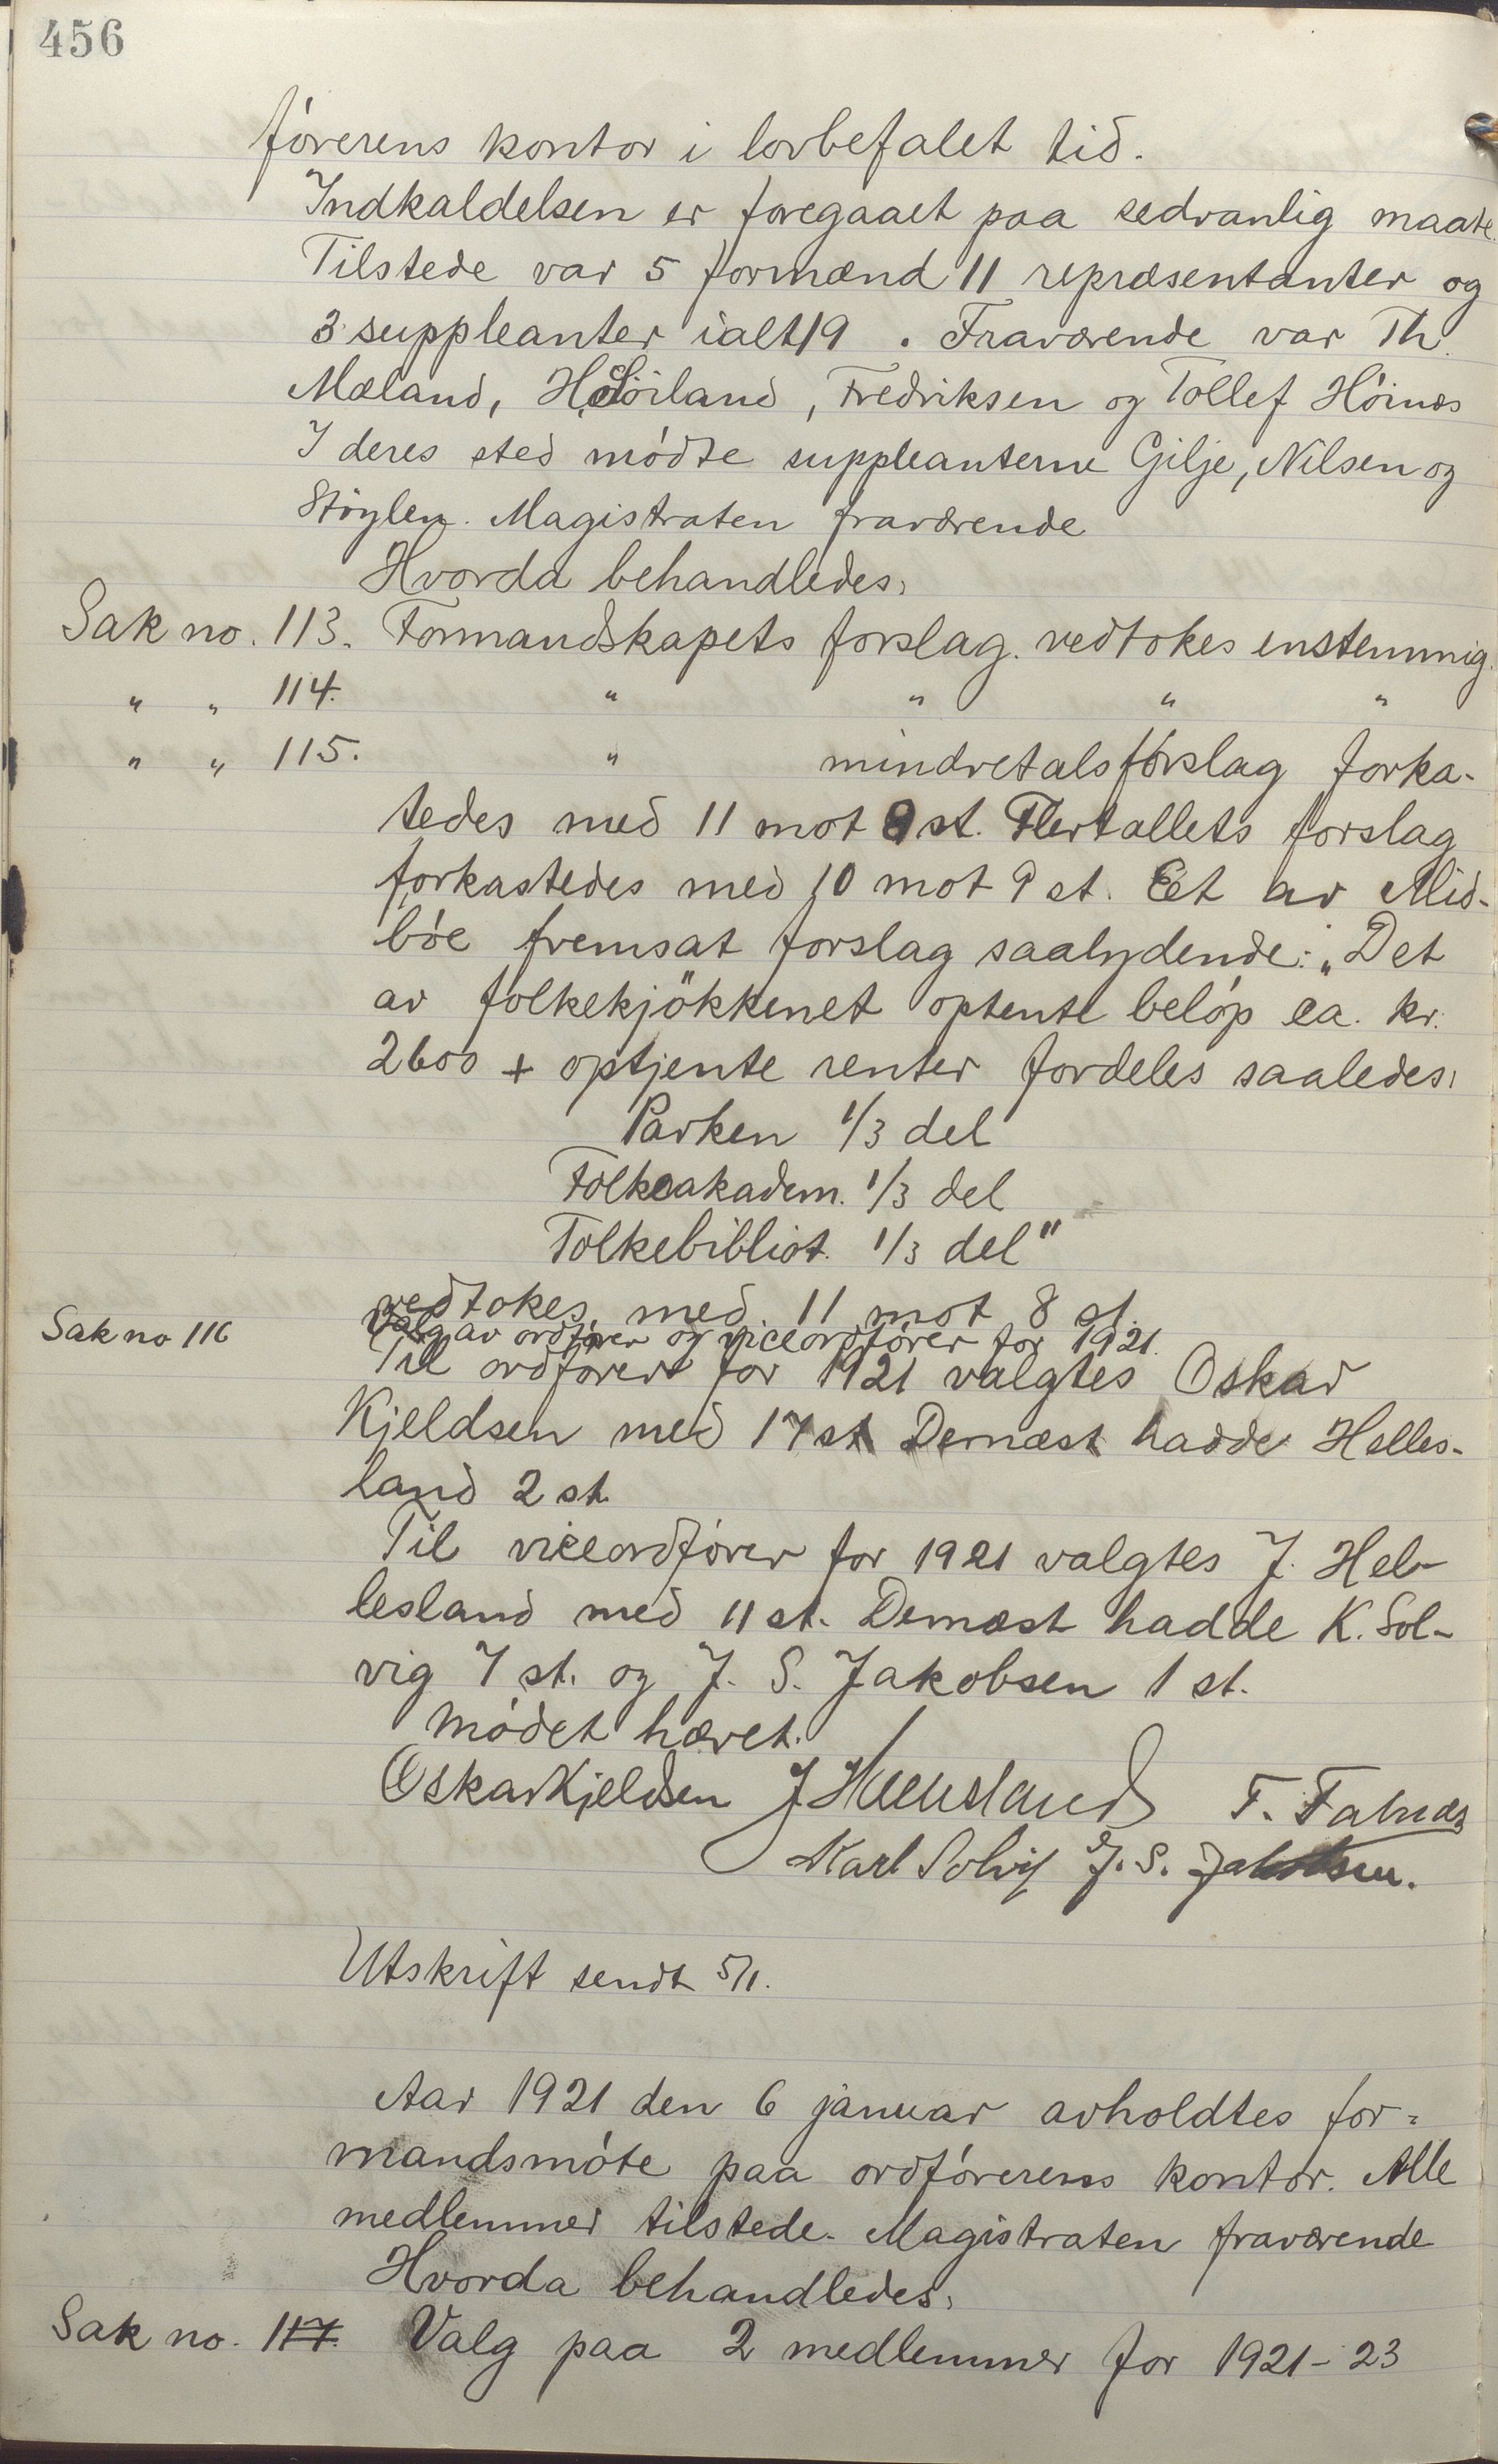 456
förerens kontor i lovbefalet tid.
Indkaldelsen er foregaaet paa sedvanlig maate.
Tilstede var 5 formænd 11 repræsentanter og
3 suppleanter ialt 19. Fraværende var Th.
Mæland, H. Söiland, Fredriksen og Tollef Höinæs
I deres sted mödte suppleanterne Gilje, Nilsen og
Stöylen. Magistraten fraværende
Hvorda behandledes,
Sak no. 113. Formandskapets forslag. vedtokes enstemmig.
" " 114. " " " "
" " 115. " mindretalsforslag forka-
tedes med 11 mot 8 st. Flertallets forslag
forkastedes med 10 mot 9 st. Et av Mid-
böe fremsat forslag saalydende: „Det
av folkekjökkenet optente belöp ca. kr.
2600 + optjente renter fordeles saaledes:
Parken 1/3 del
Folkeakadem. 1/3 del
Folkebibliot. 1/3 del"
vedtokes med 11 mot 8 st.
Sak no 116 Valg av ordförer og viceordförer for 1921.
Til ordförer for 1921 valgtes Oskar
Kjeldsen med 17 st. Dernæst hadde Helles-
land 2 st.
Til viceordförer for 1921 valgtes J. Hel-
lesland med 11 st. Dernæst hadde K. Sol-
vig 7 st. og J. S. Jakobsen 1 st.
Mödet hævet.
Oskar Kjeldsen J Hellesland T.
Karl Solvig J. S. Jakobsen.
Utskrift sendt 5/1.
Aar 1921 den 6 januar avholdtes for-
mandsmöte paa ordförerens kontor. Alle
medlemmer tilstede. Magistraten fraværende
Hvorda behandledes,
Sak no. 117. Valg paa 2 medlemmer for 1921-23